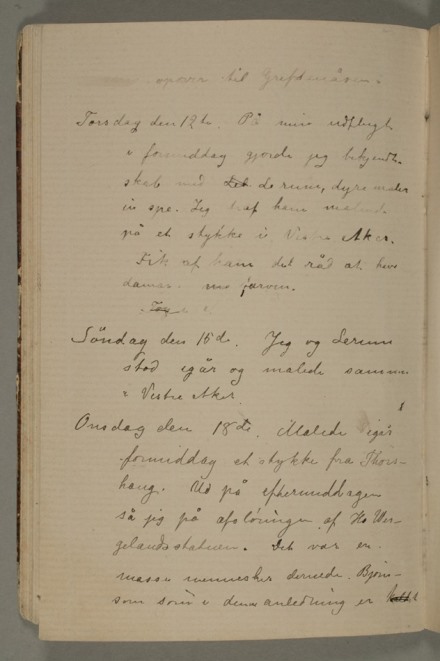 opover til Grefsenåsen.
Torsdag den 12te. På min udflugt
i formiddag gjorde jeg bekjendt-
skab med de rum, dyre maler
in spe. Jeg traf ham malende
på et stykke i Vestre Aker.
Fik af ham det råd at
farven.
Söndag den 15de. Jeg og Serum
stod igår og malede sammen
i Vestre Aker.
Onsdag den 18de. Malede igår
formiddag et stykke fra Thors-
haug. Ud på eftermiddagen
så jeg på afslöringen af H. Wer-
gelandsstatuen. Det var en
masse mennesker dernede. Björn-
son som i denne anledning er